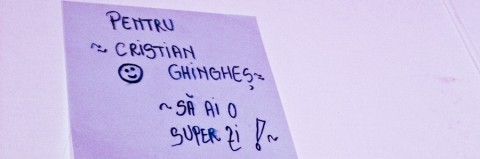 PENTRU
~ CRISTIAN
GHINGHEȘ ~
~ SĂ AI O
SUPER ZI ! ~